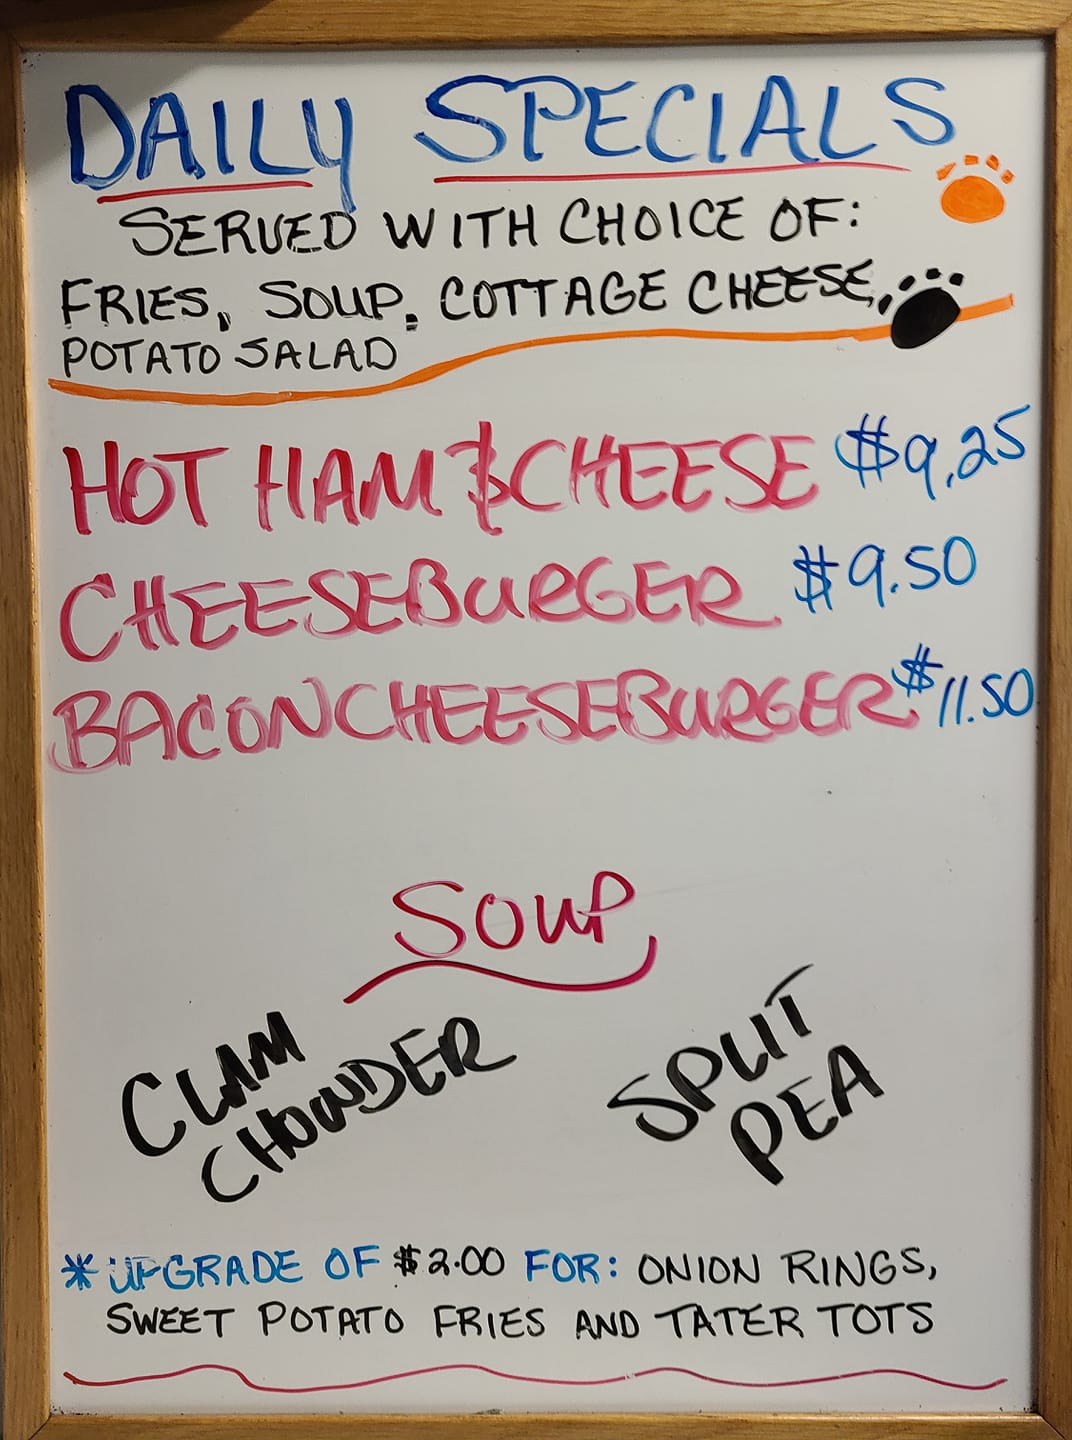 DAILY SPECIALS
SERVED WITH CHOICE OF:
FRIES, SOUP, COTTAGE CHEESE,
POTATO SALAD
HOT HAM & CHEESE $9.25
CHEESEBURGER $9.50
BACONCHEESEBURGER $11.50
SOUP
CLAM
CHOWDER
SPLIT
PEA
* UPGRADE OF $2.00 FOR: ONION RINGS,
SWEET POTATO FRIES AND TATER TOTS